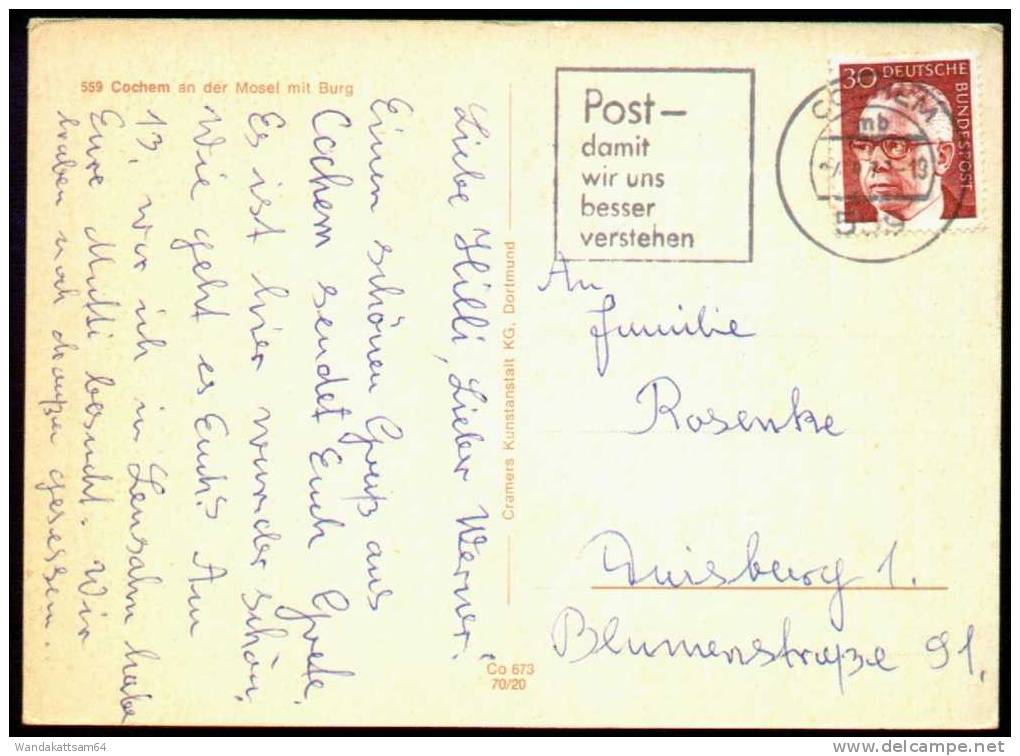 559 Cochem an der Mosel mit Burg
Liebe Hilli, Lieber Werner!
Einen schönen Gruß aus
Cochem sendet Euch Grete.
Es ist hier wunderschön.
Wie geht es Euch? Am
13. war ich in Lensahn habe
Eure Mutti besucht. Wir
haben noch draußen gesessen.
Cramers Kunstanstalt KG, Dortmund
Co 673
70/20
Post–
damit
wir uns
besser
verstehen
COCHEM
mb
559
30 DEUTSCHE
BUNDESPOST
An
Familie
Rosenke
Duisburg 1.
Blumenstraße 91.
Wandakattsam64
delcampe.net